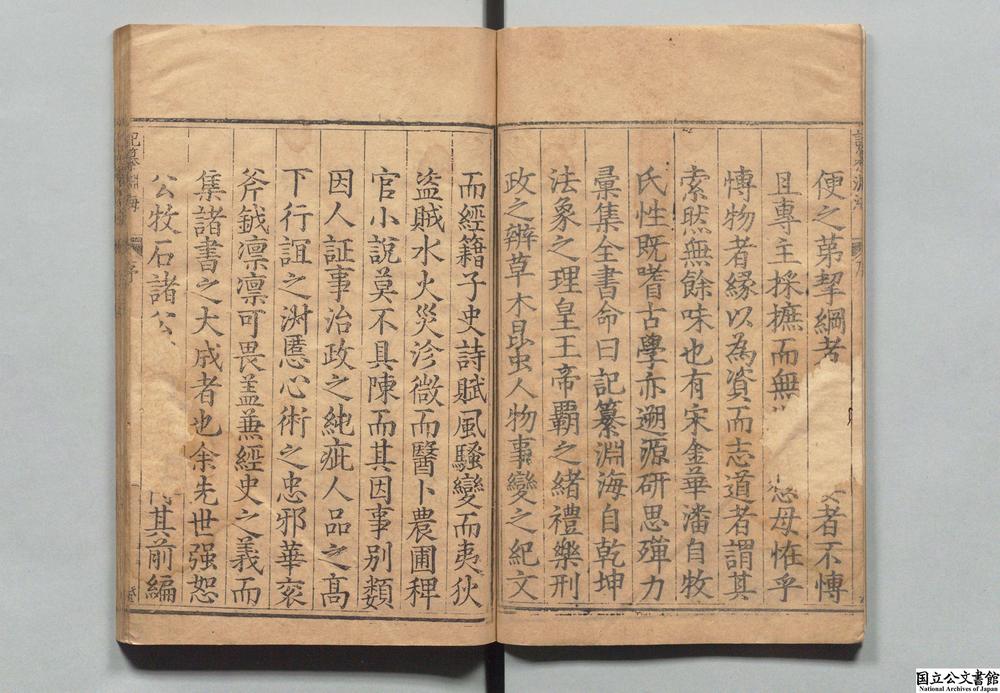 便之第挈綱者 者不慱
且專主採摭而無 懲母恠乎
慱物者緣以為資而志道者謂其
索然無餘味也有宋金華潘自牧
氏性既嗜古學亦遡源研思殫力
彙集全書命曰記纂淵海自乾坤
法象之理皇王帝覇之緒禮樂刑
政之辨草木昆虫人物事變之紀文
而經籍子史詩賦風騷變而夷狄
盗賊水火災沴微而醫卜農圃稗
官小說莫不具陳而其因事别類
因人証事治政之純疵人品之高
下行誼之淑慝心術之忠邪華衮
斧鉞凛凛可畏盖兼經史之義而
集諸書之大成者也余先世强恕
公牧石諸公 其前編
記纂淵海
序
国立公文書館
National Archives of Japan